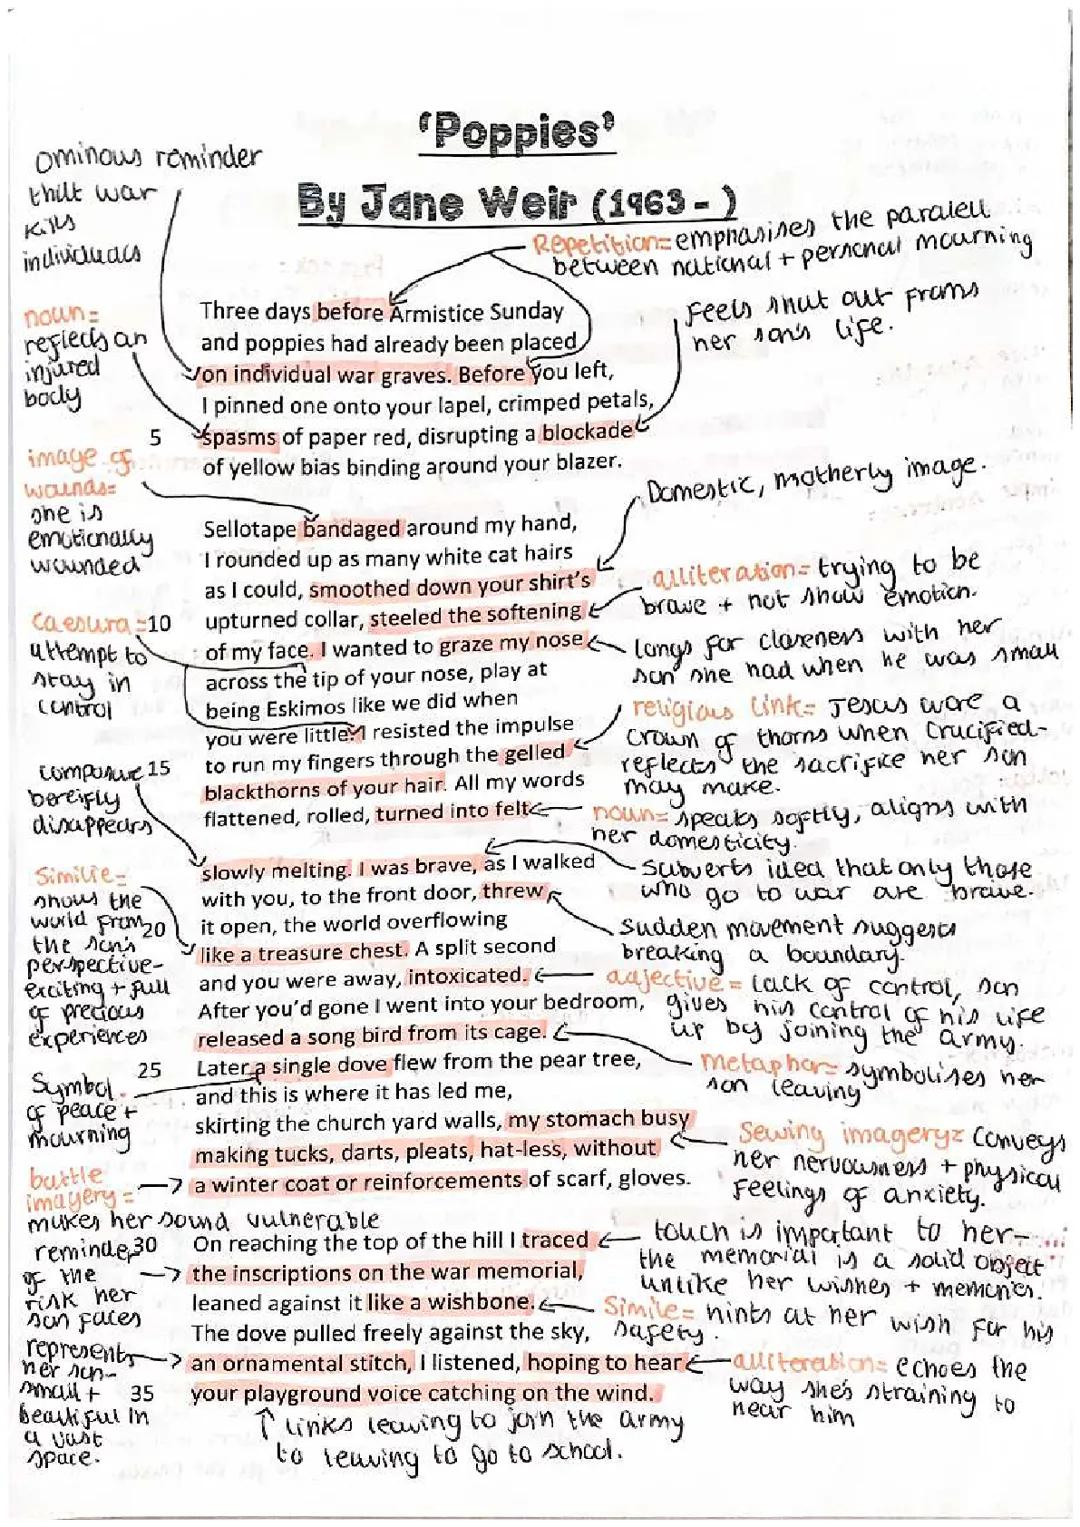 'Poppies'
By Jane Weir (1963 - )
ominous reminder
that war
kills
individuals
Repetition= emphasises the paralell
between national + personal mourning
noun=
reflects an
injured
body
Feels shut out from
her son's life.
Three days before Armistice Sunday
and poppies had already been placed
on individual war graves. Before you left,
I pinned one onto your lapel, crimped petals,
5 spasms of paper red, disrupting a blockade
of yellow bias binding around your blazer.
image of
wounds=
she is
emotionally
wounded
Domestic, motherly image.
Sellotape bandaged around my hand,
I rounded up as many white cat hairs
as I could, smoothed down your shirt's
10 upturned collar, steeled the softening
of my face. I wanted to graze my nose
across the tip of your nose, play at
being Eskimos like we did when
you were little. I resisted the impulse
15 to run my fingers through the gelled
blackthorns of your hair. All my words
flattened, rolled, turned into felt,
alliteration= trying to be
brave + not show emotion.
caesura=
attempt to
stay in
control
longs for closeness with her
son she had when he was small
religious link= Jesus wore a
crown of thorns when crucified-
reflects the sacrifice her son
may make.
composure
breifly
disappears
noun= speaks softly, aligns with
her domesticity.
slowly melting. I was brave, as I walked
with you, to the front door, threw
20 it open, the world overflowing
like a treasure chest. A split second
and you were away, intoxicated.
After you'd gone I went into your bedroom,
released a song bird from its cage.
25 Later a single dove flew from the pear tree,
and this is where it has led me,
skirting the church yard walls, my stomach busy
making tucks, darts, pleats, hat-less, without
a winter coat or reinforcements of scarf, gloves.
subverts idea that only those
who go to war are brave.
Similie=
shows the
world from
the son's
perspective-
exciting + full
of precious
experiences
Sudden movement suggests
breaking a boundary.
adjective= lack of control, son
gives his control of his life
up by joining the army.
metaphor= symbolises her
son leaving
Symbol
of peace +
mourning
Sewing imagery= conveys
her nervousness + physical
feelings of anxiety.
battle
imagery=
makes her sound vulnerable
30 On reaching the top of the hill I traced
the inscriptions on the war memorial,
leaned against it like a wishbone.
The dove pulled freely against the sky,
an ornamental stitch, I listened, hoping to hear
35 your playground voice catching on the wind.
reminder
of the
risk her
son faces
touch is important to her-
the memorial is a solid object
unlike her wishes + memories.
Simile= hints at her wish for his
safety.
represents
her son-
small +
beautiful in
a vast
space.
alliteration= echoes the
way she's straining to
hear him
links leaving to join the army
to leaving to go to school.